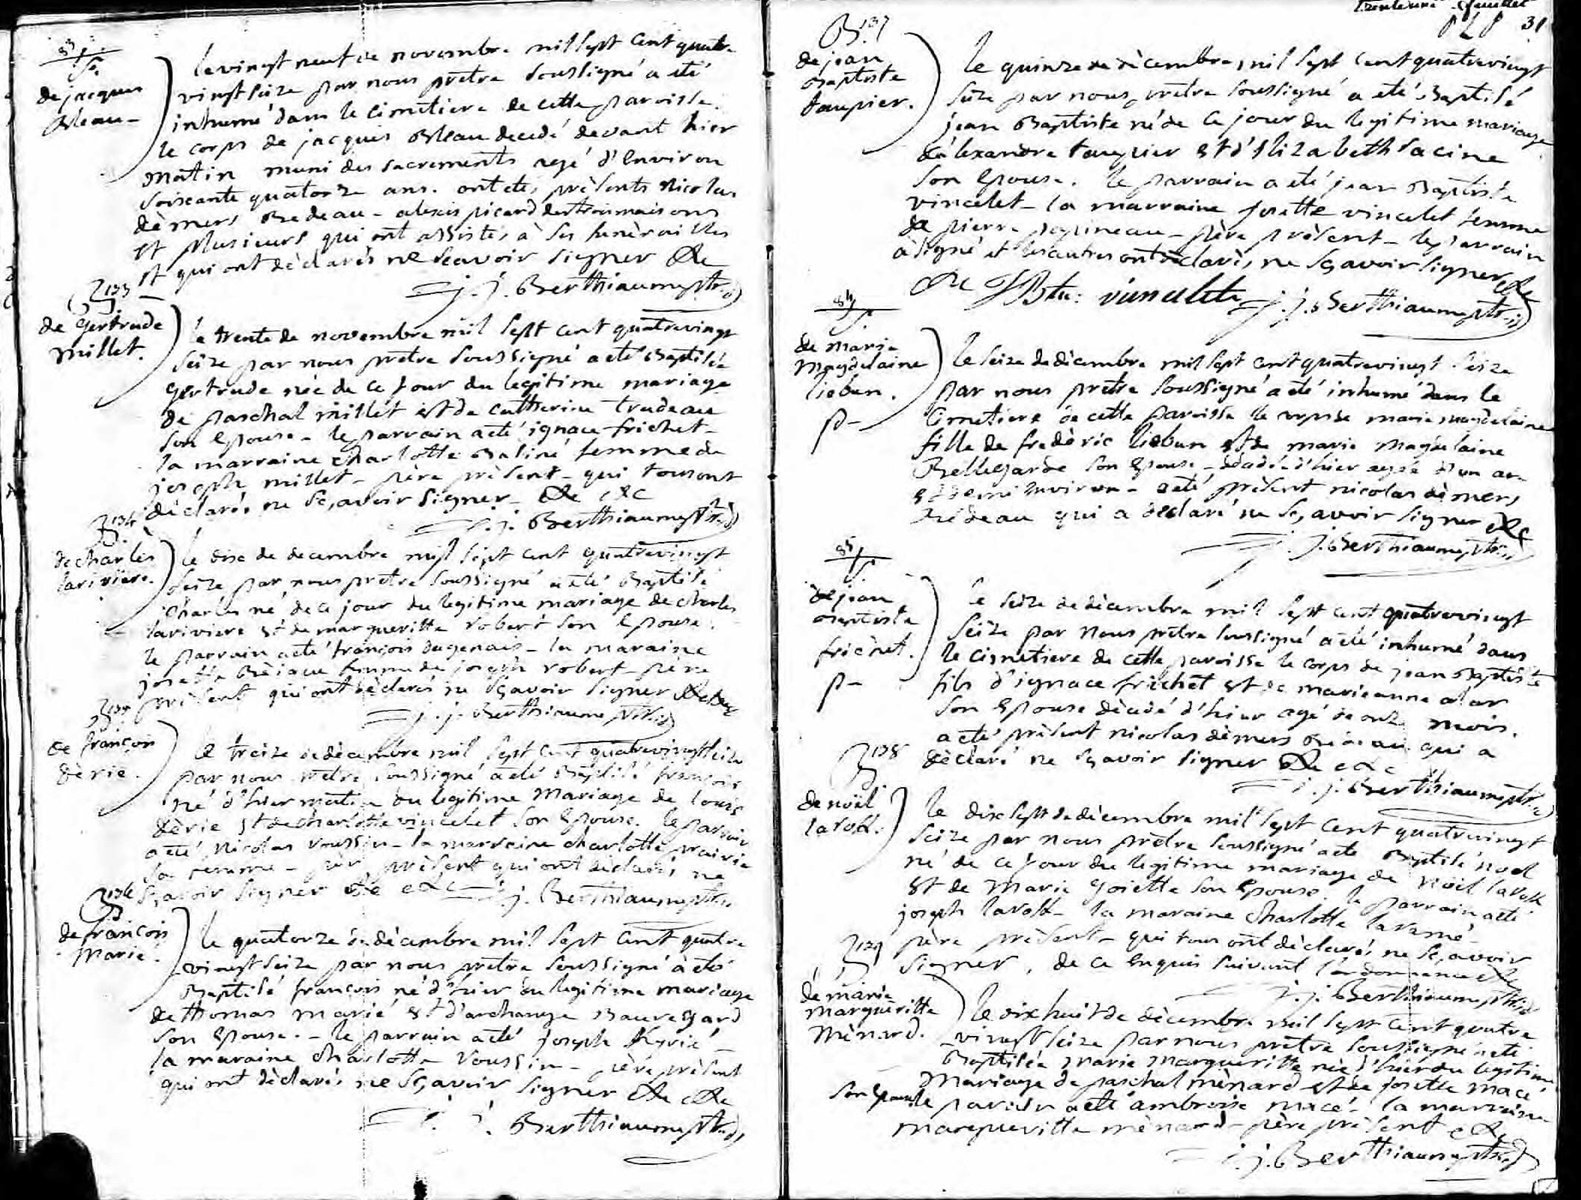 83
S.
de jacques
Bleau-
le vingt neuf de novembre mil sept cent quatre
vingt seize par nous prêtre soussigné a été
inhumé dans le cimetiere de cette paroisse
le corps de jacques Bleau decedé devant hier
matin muni des sacrements agé d'environ
soixante quatorze ans. ont etés présents Nicolas
dèmers Bedeau - alexis picard
et plusieurs qui ont assistés à ses funèrailles
et qui ont dèclarés ne scavoir signer &c
j. j. Berthiaume ptre
B133
de Gertrude
millet.
le trente de novembre mil sept cent quatrevingt
seize par nous prêtre soussigné a eté Baptisée
Gertrude née de ce jour du legitime mariage
de paschal millet et de catherine trudeau
son Epouse - le parrain a eté ignace frichet -
la marraine charlotte Baliné femme de
joseph millet - père présent - qui tous ont
déclarés ne sçavoir signer - &c &c
j. j. Berthiaume ptre
B134
de charles
lariviere.
le dix de decembre mil sept cent quatrevingt
seize par nous prêtre soussigné a eté Baptisé
Charles né de ce jour du legitime mariage de charles
lariviere et de margueritte robert son Epouse.
le parrain a eté francois dagenais - la maraine
josette femme de joseph robert - père
présent qui ont déclarés ne sçavoir signer &c
j. j. Berthiaume ptre
B135
de francois
dèrie.
le treize de dècembre mil sept cent quatrevingt seize
par nous prêtre soussigné a eté Baptisé francois
né d'hier matin du legitime mariage de louis
dèrie et de charlotte vincelet son Epouse. le parrain
a eté Nicolas voussin - la marraine charlotte prairie
sa femme - père présent qui ont déclarés ne
sçavoir signer &c &c j. j. Berthiaume ptre
B136
de francois
Marié.
le quatorze de dècembre mil sept cent quatre
vingt seize par nous prêtre soussigné a eté
Baptisé francois né d'hier du legitime mariage
de thomas marié et d'archange Beauregard
son Epouse. - le parrain a eté joseph -
la maraine charlotte voussin - père présent
qui ont déclarés ne sçavoir signer &c &c
j. j. Berthiaume ptre
feuillet
31
B137
de jean
Baptiste
taupier.
le quinze de dècembre mil sept cent quatrevingt
seize par nous prêtre soussigné a eté Baptisé
jean Baptiste né de ce jour du legitime mariage
d'alexandre taupier et d'Elizabeth racine
son Epouse. le parrain a eté jean Baptiste
vincelet - la marraine josette vincelet femme
de pierre papineau - père présent - le parrain
a signé et les autres ont déclarés ne sçavoir signer &c
&c J Bte: vincelete j. j. Berthiaume ptre
84
S
de marie
Magdelaine
liebun.
p-
le seize de dècembre mil sept cent quatrevingt seize
par nous prêtre soussigné a eté inhumé dans le
cimetiere de cette paroisse le corps de marie magdelaine
fille de frèdèric liebun et de marie magdelaine
Bellegarde son Epouse - dècèdée d'hier agée d'un an
et demi environ - a eté présent nicolas dèmers
Bedeau qui a déclaré ne sçavoir signer &c
j. j. Berthiaume ptre
85
S
de jean
Baptiste
frichet.
p-
le seize de dècembre mil sept cent quatrevingt
seize par nous prêtre soussigné a eté inhumé dans
le cimetiere de cette paroisse le corps de jean Baptiste
fils d'ignace frichet et de marieanne alar
son Epouse dècèdé d'hier agé de onze mois.
a eté présent nicolas dèmers Bedeau qui a
déclaré ne sçavoir signer &c &c
j. j. Berthiaume ptre
B138
de noël
lavoll.
le dix sept de dècembre mil sept cent quatrevingt
seize par nous prêtre soussigné a eté Baptisé noel
né de ce jour du legitime mariage de Noël
et de Marie Goiette son Epouse le parrain a eté
joseph - la maraine charlotte laramé -
père présent - qui tous ont déclarés ne sçavoir
signer, de ce enquis suivant l'ordonnance &c
j. j. Berthiaume ptre
B139
de marie
margueritte
Mènard.
le dix huit de dècembre mil sept cent quatre
vingt seize par nous prêtre soussigné a eté
Baptisée Marie Margueritte née d'hier du legitime
mariage de paschal mènard et de josette macé
son Epouse le parrain a eté ambroise macé - la marraine
margueritte mènard - père présent &c
j. j. Berthiaume ptre